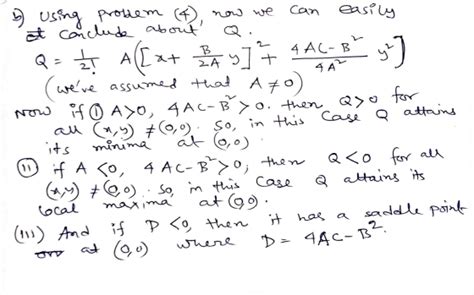 b) Using problem (4), now we can easily
conclude about Q.
Q = 1/2! A([x + B/2A y]² + 4AC-B²/4A² y²)
(we've assumed that A ≠ 0)
Now if (i) A>0, 4AC-B²>0. then Q>0 for
all (x,y) ≠ (0,0). So, in this case Q attains
its minima at (0,0).
(ii) if A<0, 4AC-B²>0, then Q<0 for all
(x,y) ≠ (0,0). so in this case Q attains its
local maxima at (0,0).
(iii) And if D<0, then it has a saddle point
at (0,0) where D = 4AC-B².